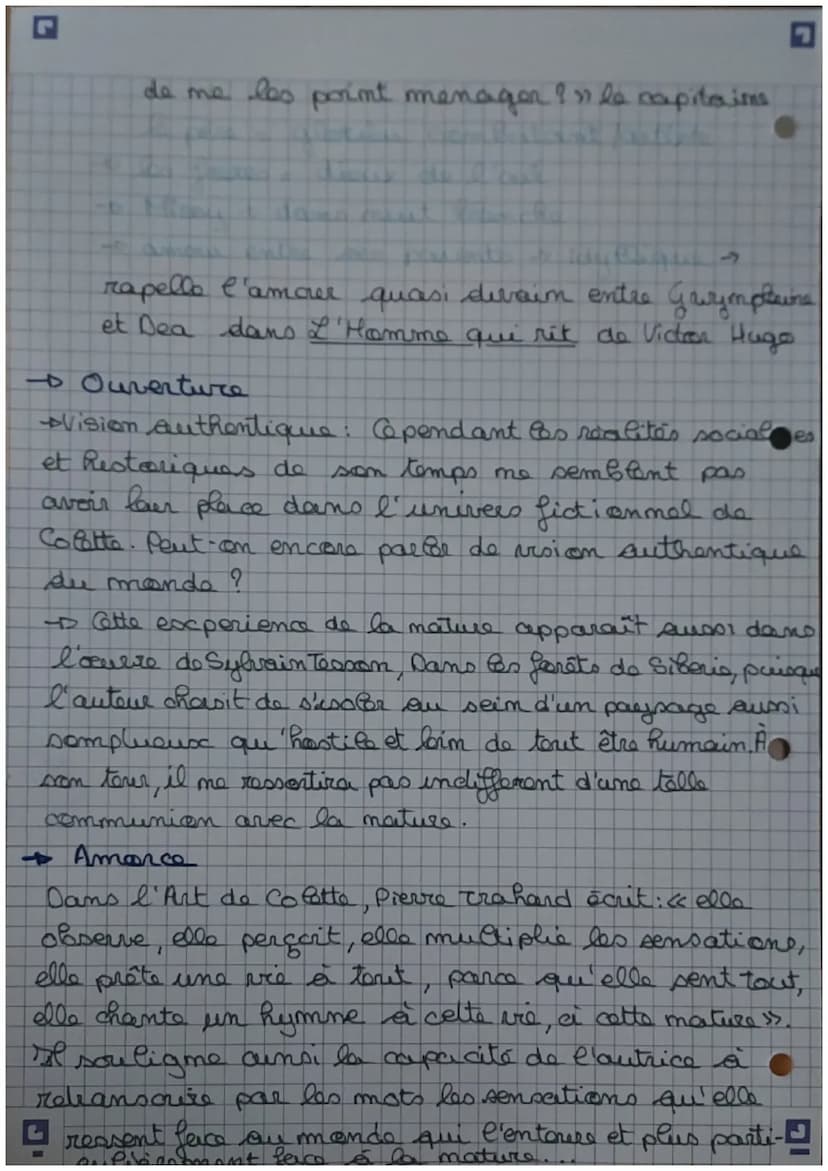 de ne les point menager ? » le capitaine
→
rapelle l'amour quasi divain entre Gwynplaine
et Dea dans L'Homme qui rit de Victor Hugo
→ Ouverture
→ Vision authentique : Cependant les réalités sociales
et historiques de son temps ne semblent pas
avoir leur place dans l'univers fictionnel de
Colette. Peut-on encore parler de vision authentique
du monde ?
→ Cette excperience de la nature apparaît aussi dans
l'œuvre de Sylvain Tesson, Dans les forêts de Siberie, puisque
l'auteur choisit de s'isoler au sein d'un paysage aussi
somptueux qu'hostile et loin de tout être humain. À
son tour, il ne ressortira pas indifferent d'une telle
communion avec la nature.
→ Amorce
Dans l'Art de Colette, Pierre Trahard écrit : « elle
observe, elle perçoit, elle multiplie les sensations,
elle prête une vie à tout, parce qu'elle sent tout,
elle chante un hymne à cette vie, à cette nature ».
Il souligne ainsi la capacité de l'autrice à
retranscrire par les mots les sensations qu'elle
ressent face au monde qui l'entoure et plus parti-
culièrement face à la nature...